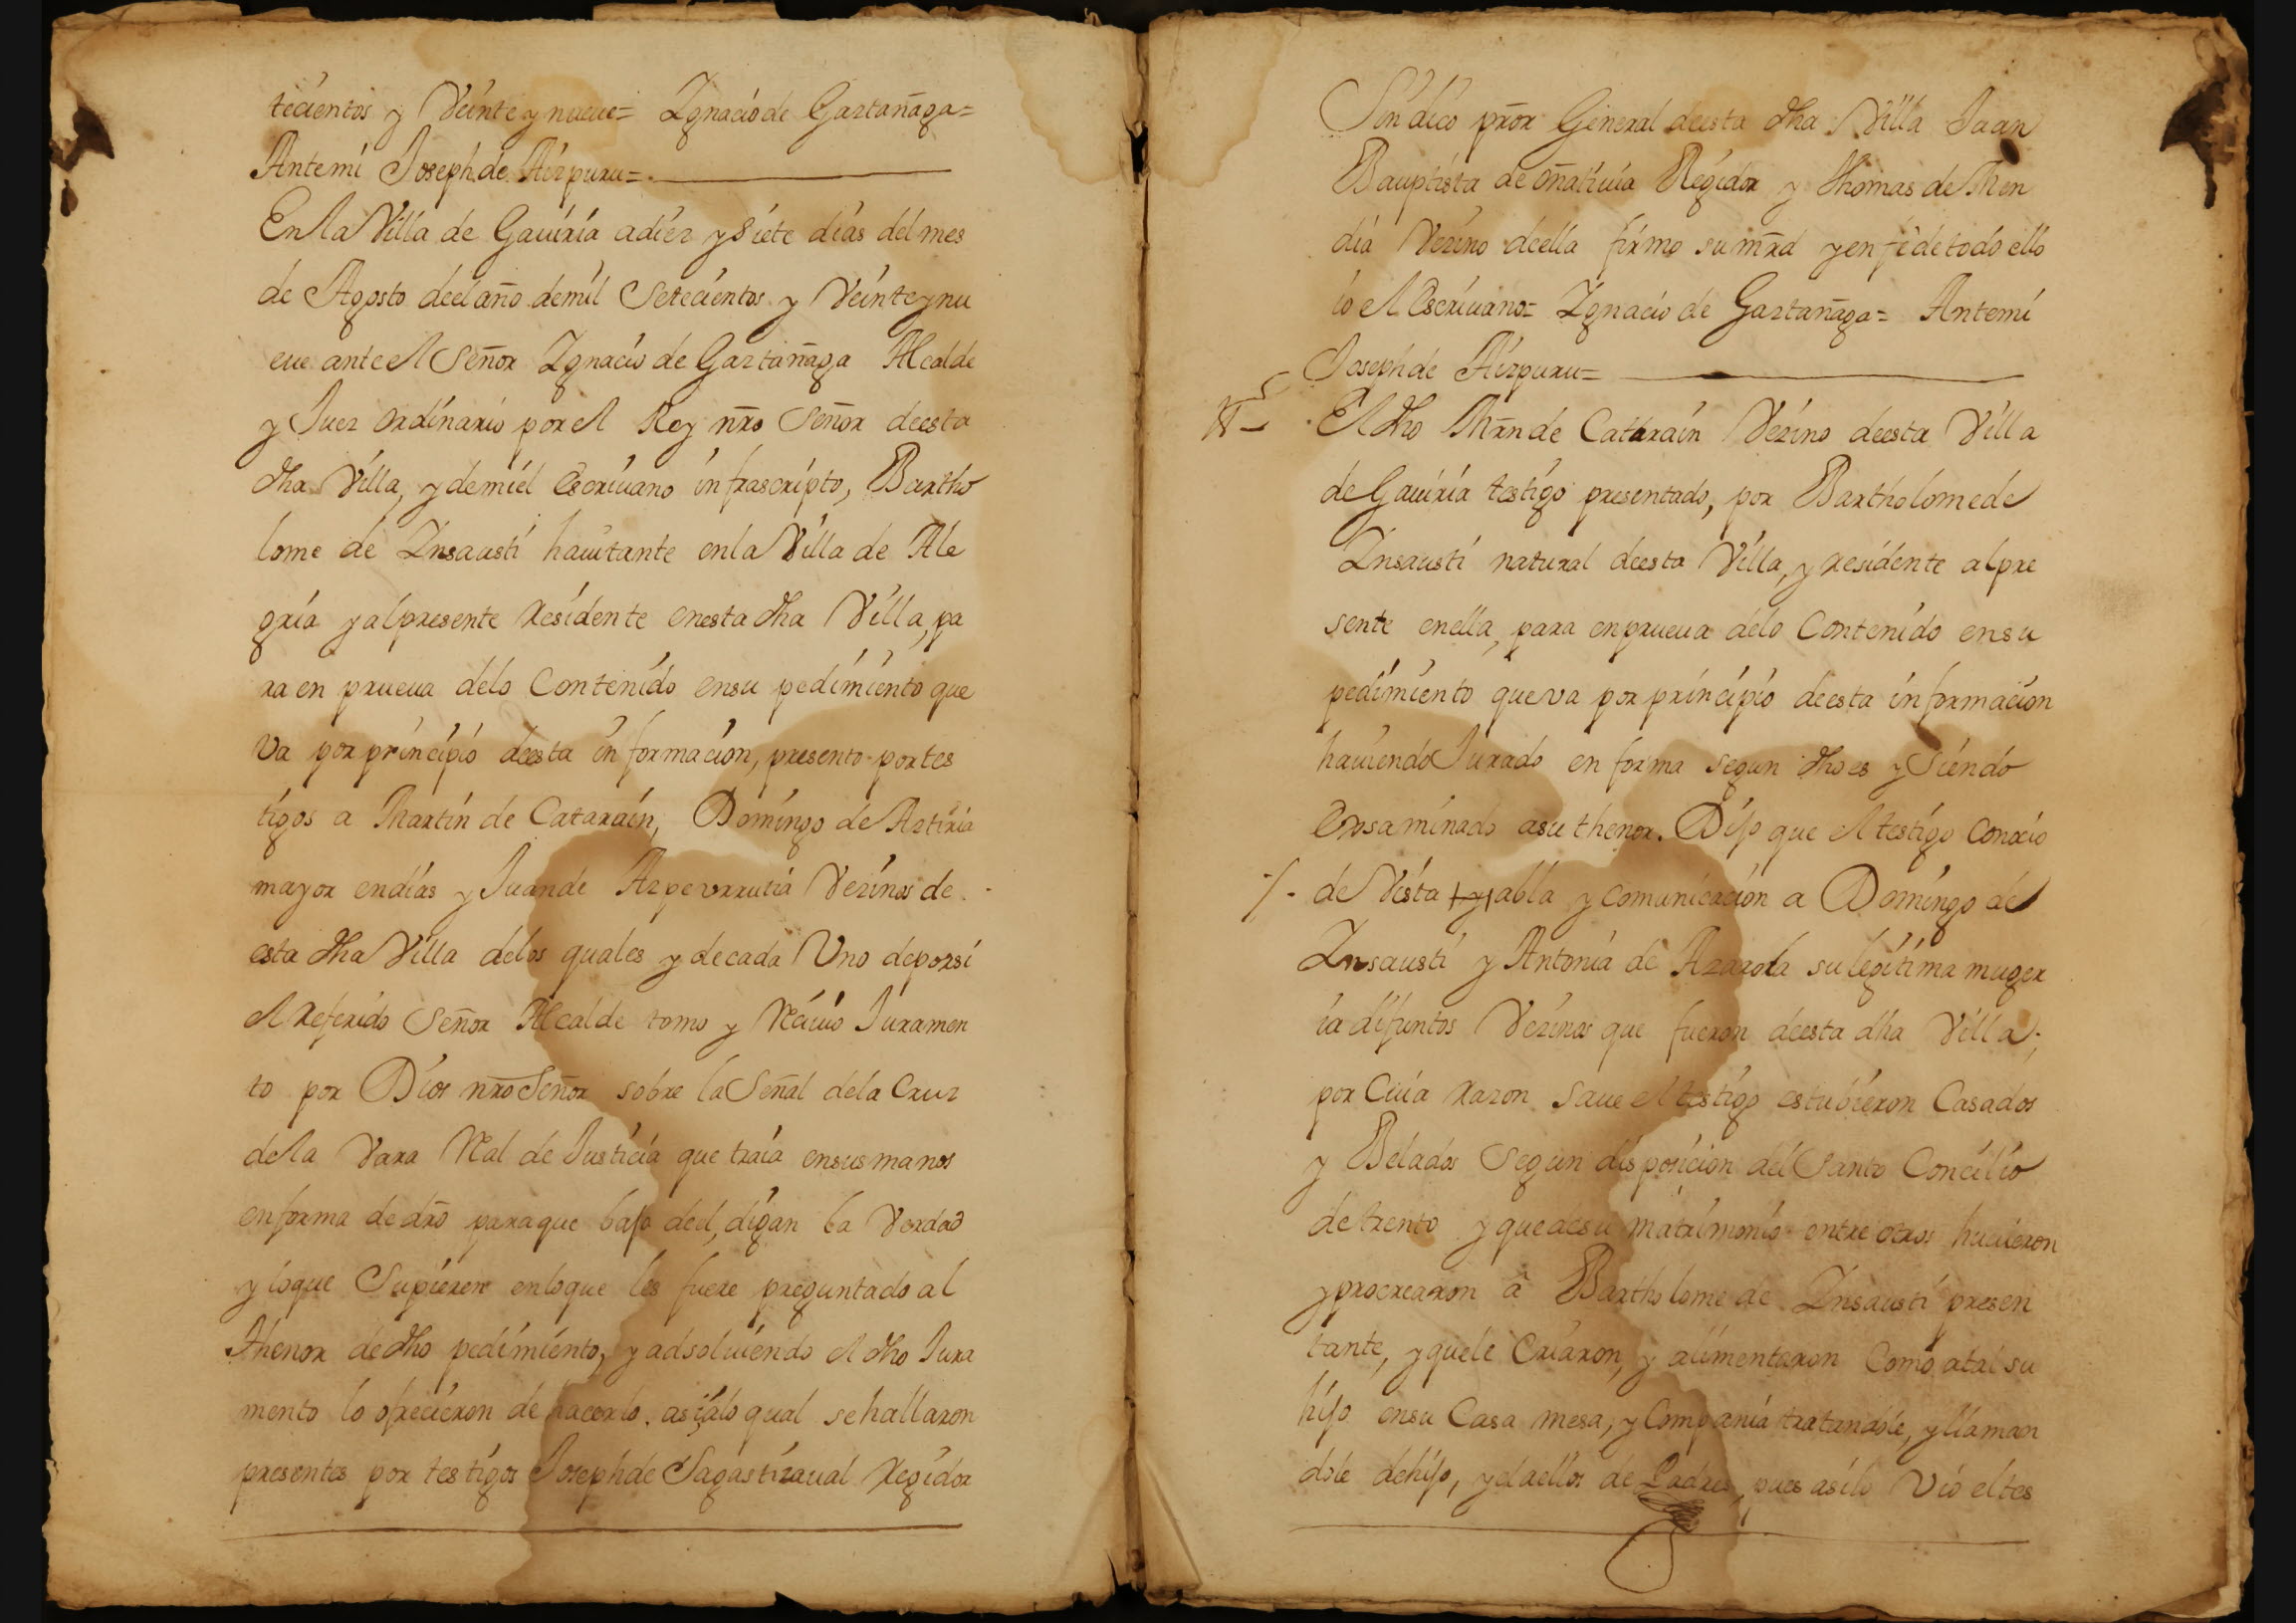 tecientos y Veinte y nueue= Ygnacio de Gaztañaga=
Antemi Joseph de Aizpuru=
En la Villa de Gauiria a diez y siete dias del mes
de Agosto de el año de mil Setecientos y Veinte y nu
eue ante el Señor Ygnacio de Gaztañaga Alcalde
y Juez ordinario por el Rey nro Señor de esta
dha Villa, y de mi el escriuano infrascripto, Bartho
lome de Ynsausti hauitante en la Villa de Ale
gria y al presente residente en esta dha Villa, pa
ra en prueua de lo Contenido en su pedimiento que
va por principio de esta informacion, presento por tes
tigos a Martin de Catarain, Domingo de Aztiria
mayor en dias y Juan de Azpeurrutia Vezinos de
esta dha Villa de los quales y de cada Uno de por si
el referido Señor Alcalde tomo y Reciuio Juramen
to por Dios nro Señor sobre la Señal de la Cruz
de la Vara Real de Justicia que traia en sus manos
en forma de dro para que bajo de el, digan la Verdad
y lo que Supieren en lo que les fuere preguntado al
thenor de dho pedimiento, y adsoluiendo el dho Jura
mento lo ofrecieron de hacerlo. asi, a lo qual se hallaron
presentes por testigos Joseph de Sagastizaual Regidor
Sindico pror General de esta dha Villa Juan
Bauptista de oñatiuia Regidor y Thomas de Men
dia Vezino de ella firmo su mrd y en fe de todo ello
io el escriuano= Ygnacio de Gaztañaga= Antemi
Joseph de Aizpuru=
El dho Mrn de Catarain Vezino de esta Villa
de Gauiria testigo presentado, por Bartholome de
Ynsausti natural de esta Villa, y residente al pre
sente en ella, para en prueua de lo Contenido en su
pedimiento que va por principio de esta informacion
hauiendo Jurado en forma segun dho es y Siendo
exsaminado a su thenor. Dijo que el testigo Conocio
de Vista y abla y comunicacion a Domingo de
Ynsausti y Antonia de Azarola su legitima muger
ia difuntos Vezinos que fueron de esta dha Villa;
por Cuia razon Saue el testigo estubieron Casados
y Belados Segun disposicion del Santo Concilio
de trento y que de su matrimonio entre otros huuieron
y procrearon â Bartholome de Ynsausti presen
tante, y que le Criaron, y alimentaron Como a tal su
hijo en su Casa mesa, y Compania tratandole, y llaman
dole de hijo, y el a ellos de Padres, pues asi lo Vio el tes